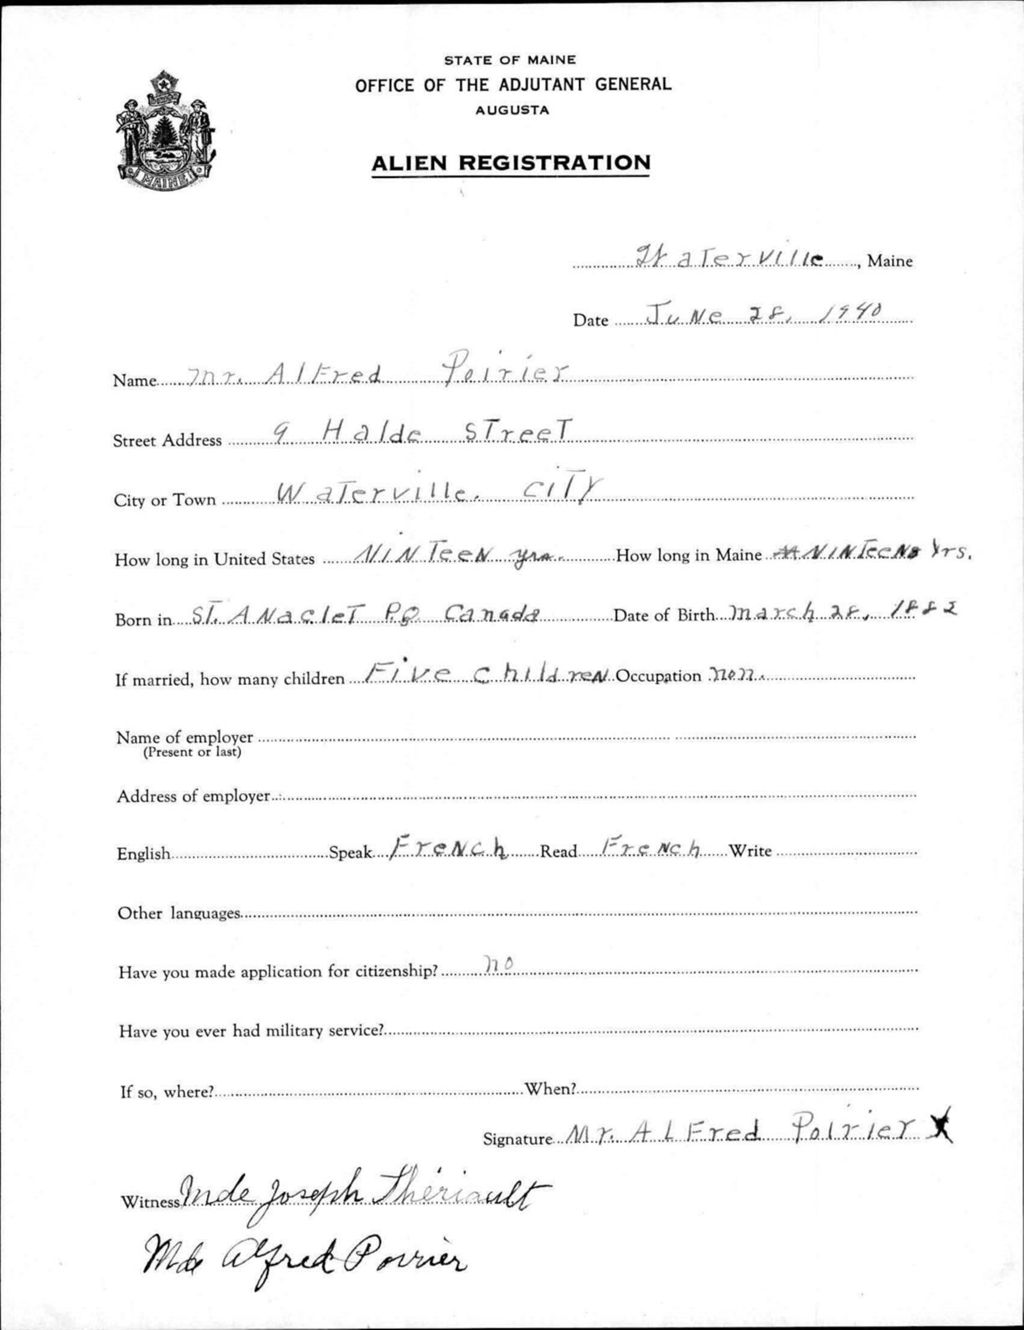 STATE OF MAINE
OFFICE OF THE ADJUTANT GENERAL
AUGUSTA
ALIEN REGISTRATION
MAINE
Waterville, Maine
Date June 28, 1940
Name Mr. Alfred Poirier
Street Address 9 Halde Street
City or Town Waterville. City
How long in United States Ninteen yrs. How long in Maine Ninteen yrs.
Born in St. Anaclet P.Q. Canada Date of Birth March 28, 1882
If married, how many children Five children Occupation non.
Name of employer
(Present or last)
Address of employer
English Speak French Read French Write
Other languages
Have you made application for citizenship? no
Have you ever had military service?
If so, where? When?
Signature Mr. Alfred Poirier X
Witness Mde Joseph Thériault
Mde Alfred Poirier